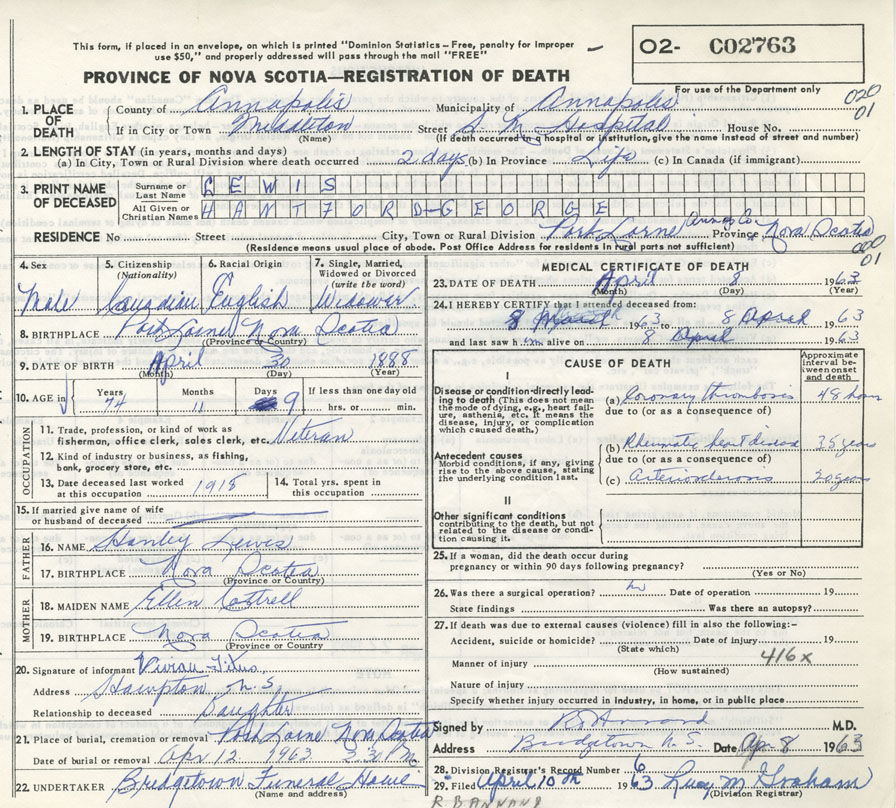 This form, if placed in an envelope, on which is printed "Dominion Statistics – Free, penalty for improper
use $50," and properly addressed will pass through the mail "FREE"
O2- C02763
PROVINCE OF NOVA SCOTIA—REGISTRATION OF DEATH
For use of the Department only
020
01
1. PLACE OF DEATH County of Annapolis Municipality of Annapolis
If in City or Town Middleton Street S. M. Hospital House No.
(Name) (If death occurred in a hospital or institution, give the name instead of street and number)
2. LENGTH OF STAY (in years, months and days)
(a) In City, Town or Rural Division where death occurred 2 days (b) In Province Life (c) In Canada (if immigrant)
3. PRINT NAME OF DECEASED Surname or Last Name LEWIS
All Given or Christian Names HANTFORD-GEORGE
RESIDENCE No Street City, Town or Rural Division Port Lorne Annap Co. Province Nova Scotia
(Residence means usual place of abode. Post Office Address for residents in rural parts not sufficient)
000
01
4. Sex 5. Citizenship (Nationality) 6. Racial Origin 7. Single, Married, Widowed or Divorced (write the word)
Male Canadian English Widower
8. BIRTHPLACE Port Lorne Nova Scotia
(Province or Country)
9. DATE OF BIRTH April 30 1888
(Month) (Day) (Year)
10. AGE in Years Months Days If less than one day old
74 11 9 hrs. or min.
OCCUPATION
11. Trade, profession, or kind of work as
fisherman, office clerk, sales clerk, etc. Veteran
12. Kind of industry or business, as fishing,
bank, grocery store, etc.
13. Date deceased last worked at this occupation 1918 14. Total yrs. spent in this occupation
15. If married give name of wife
or husband of deceased
FATHER
16. NAME Stanley Lewis
17. BIRTHPLACE Nova Scotia
(Province or Country)
MOTHER
18. MAIDEN NAME Ellen Cottrell
19. BIRTHPLACE Nova Scotia
(Province or Country
20. Signature of informant Vivian Titus
Address Hampton N.S.
Relationship to deceased Daughter
21. Place of burial, cremation or removal Port Lorne Nova Scotia
Date of burial or removal Apr 12. 1963 2.30 PM
22. UNDERTAKER Bridgetown Funeral Home
(Name and address)
MEDICAL CERTIFICATE OF DEATH
23. DATE OF DEATH April 8 1963
(Month) (Day) (Year)
24. I HEREBY CERTIFY that I attended deceased from:
8 March 1963 to 8 April 1963
and last saw him alive on 8 April 1963
CAUSE OF DEATH
Approximate interval between onset and death
I
Disease or condition directly leading to death (This does not mean the mode of dying, e.g., heart failure, asthenia, etc. It means the disease, injury, or complication which caused death.)
(a) Coronary thrombosis 48 hours
due to (or as a consequence of)
Antecedent causes
Morbid conditions, if any, giving rise to the above cause, stating the underlying condition last.
(b) Rheumatic heart disease 35 years
due to (or as a consequence of)
(c) Arteriosclerosis 20 years
II
Other significant conditions
contributing to the death, but not related to the disease or condition causing it.
25. If a woman, did the death occur during
pregnancy or within 90 days following pregnancy?
(Yes or No)
26. Was there a surgical operation? no Date of operation 19
State findings Was there an autopsy?
27. If death was due to external causes (violence) fill in also the following:–
Accident, suicide or homicide? Date of injury 19
(State which)
416x
Manner of injury
(How sustained)
Nature of injury
Specify whether injury occurred in industry, in home, or in public place
Signed by M.D.
Address Bridgetown N.S. Date Ap. 8 1963
28. Division Registrar's Record Number 6
29. Filed April 10th 1963 Lucy M Graham
(Division Registrar)